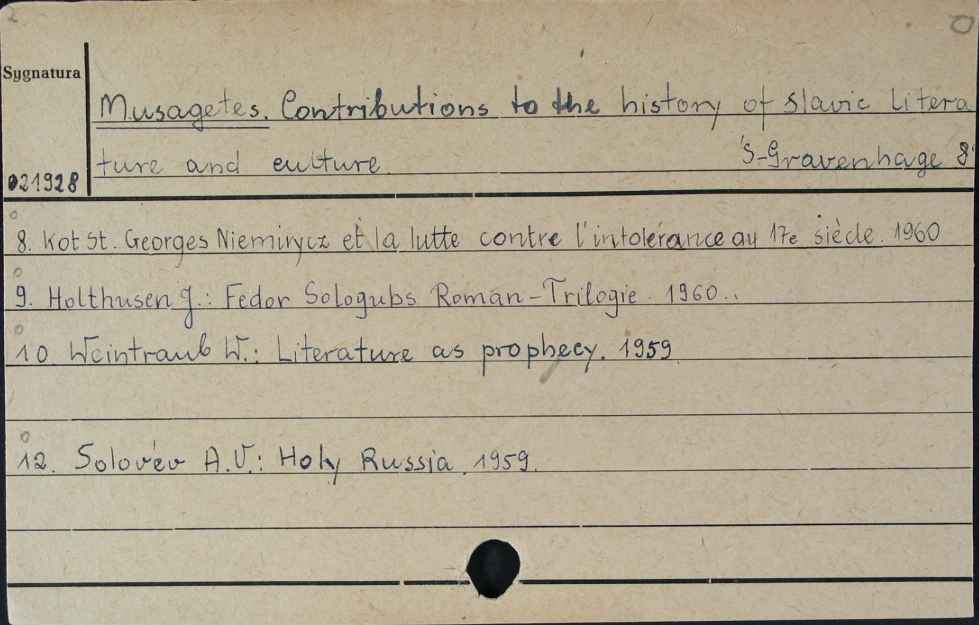 2
Sygnatura
Musagetes. Contributions to the history of slavic litera
ture and culture. 's-Gravenhage 8°
021928
8. Kot St. Georges Niemirycz et la lutte contre l'intolérance au 17e siècle. 1960
9. Holthusen J.: Fedor Sologubs Roman-Trilogie. 1960..
10. Weintraub W.: Literature as prophecy. 1959
12. Solov'ev A.V.: Holy Russia. 1959.